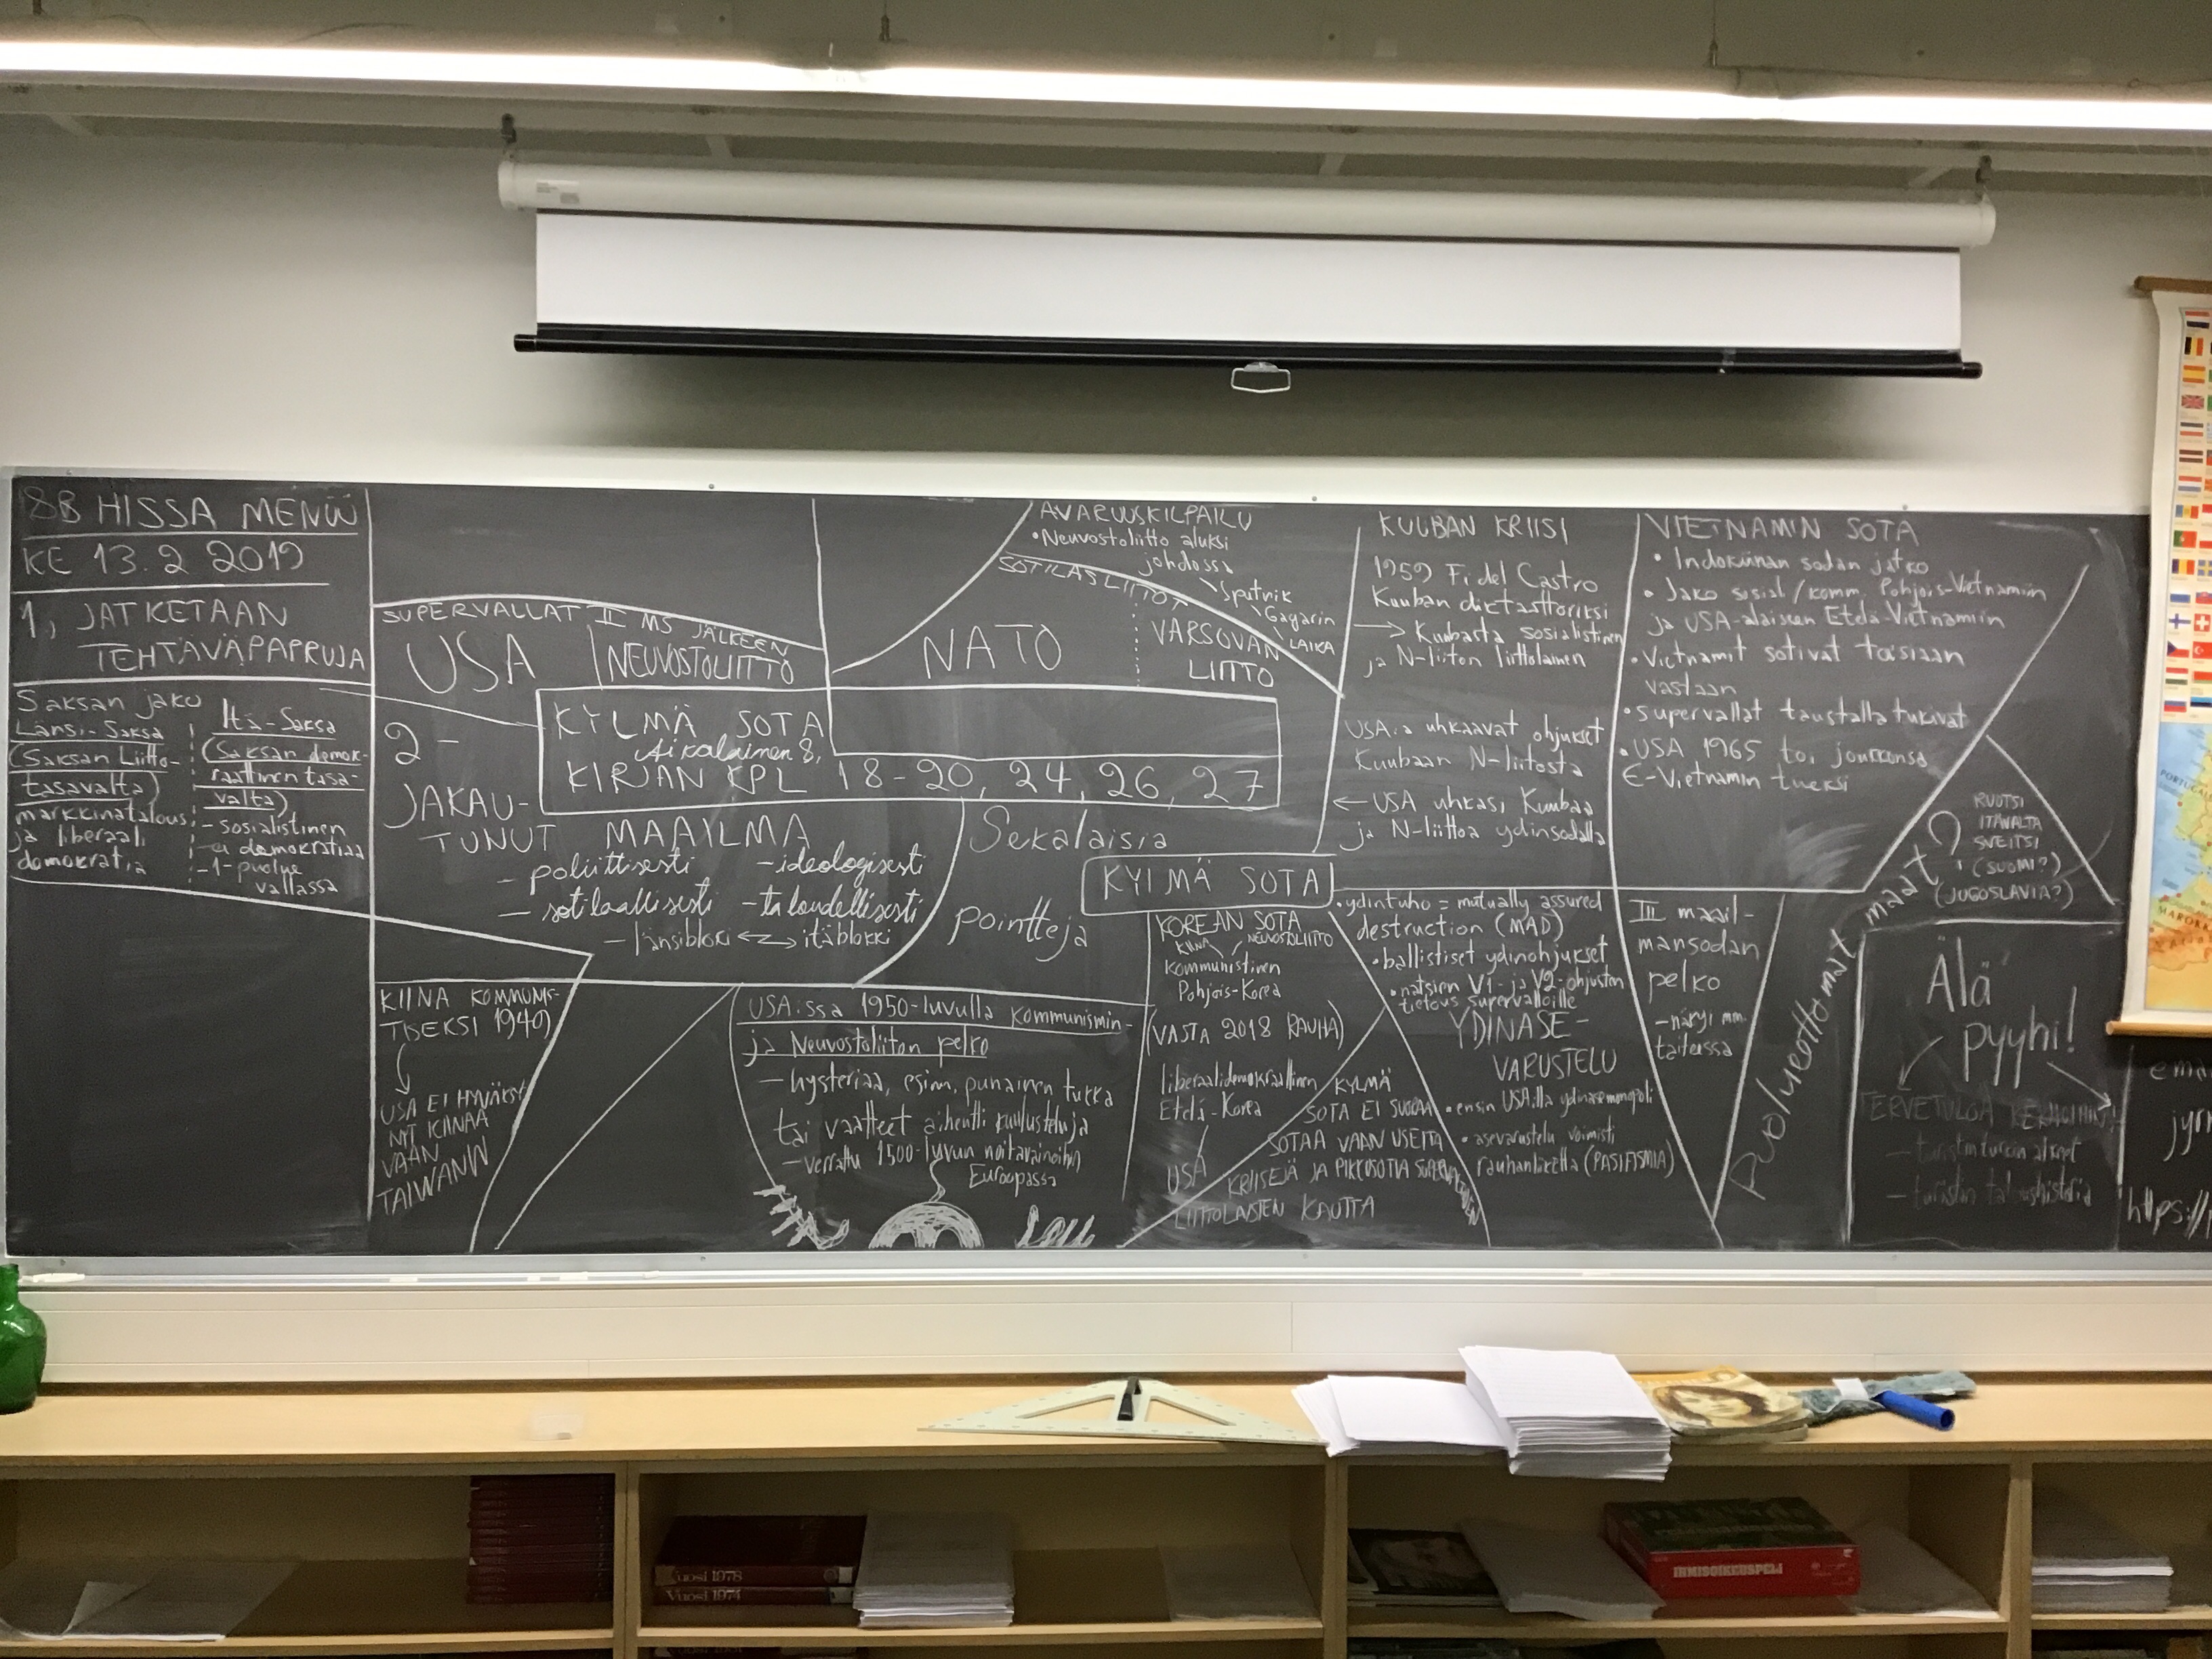 8B HISSA MENUU
KE 13.2 2019
1, JATKETAAN
TEHTÄVÄPAPRUJA
Saksan jako
Länsi-Saksa
(Saksan Liitto-
tasavalta)
markkinatalous
ja liberaali
demokratia
Itä-Saksa
(Saksan demok-
raattinen tasa-
valta)
- sosialistinen
- ei demokratiaa
- 1-puolue
vallassa
SUPERVALLAT II MS JÄLKEEN
USA
NEUVOSTOLIITTO
KYLMÄ SOTA
Aikalainen 8,
KIRJAN KPL 18-20, 24, 26, 27
2-
JAKAU-
TUNUT MAAILMA
- poliittisesti
- ideologisesti
- sotilaallisesti
- taloudellisesti
- länsiblokki ↔ itäblokki
KIINA KOMMUNIS-
TISEKSI 1949
USA EI HYVÄKSY
NYT KIINAA
VAAN
TAIWANIN
AVARUUSKILPAILU
• Neuvostoliitto aluksi
johdossa
Sputnik
Gagarin
LAIKA
SOTILASLIITOT
NATO
VARSOVAN
LIITTO
Sekalaisia
pointteja
KYLMÄ SOTA
USA:ssa 1950-luvulla kommunismin-
ja Neuvostoliiton pelko
- hysteriaa, esim. punainen tukka
tai vaatteet aiheutti kuulusteluja
- verrattu 1500-luvun noitavainoihin
Euroopassa
KOREAN SOTA
KIINA NEUVOSTOLIITTO
kommunistinen
Pohjois-Korea
(VASTA 2018 RAUHA)
liberaalidemokraattinen
Etelä-Korea
USA
KYLMÄ
SOTA EI SUORAA
SOTAA VAAN USEITA
KRIISEJÄ JA PIKKUSOTIA SUPERVALTOJEN
LIITTOLAISTEN KAUTTA
KUUBAN KRIISI
1959 Fidel Castro
Kuuban diktaattoriksi
→ Kuubasta sosialistinen
ja N-liiton liittolainen
USA:a uhkaavat ohjukset
Kuubaan N-liitosta
← USA uhkasi Kuubaa
ja N-liittoa ydinsodalla
• ydintuho = mutually assured
destruction (MAD)
• ballistiset ydinohjukset
• natsien V1- ja V2-ohjusten
tietous supervalloille
YDINASE-
VARUSTELU
• ensin USA:lla ydinasemonopoli
• asevarustelu voimisti
rauhanliikettä (PASIFISMIA)
VIETNAMIN SOTA
• Indokiinan sodan jatko
• Jako sosial/komm. Pohjois-Vietnamiin
ja USA-alaiseen Etelä-Vietnamiin
• Vietnamit sotivat toisiaan
vastaan
• supervallat taustalla tukivat
• USA 1965 toi joukkonsa
E-Vietnamin tueksi
III maail-
mansodan
pelko
- näkyi mm.
taiteessa
Puolueettomat maat?
RUOTSI
ITÄVALTA
SVEITSI
(SUOMI?)
(JUGOSLAVIA?)
Älä
pyyhi!
TERVETULOA
https://
Vuosi 1978
Vuosi 1974
IHMISOIKEUSPELI
PORTUGAL
MAROKKO